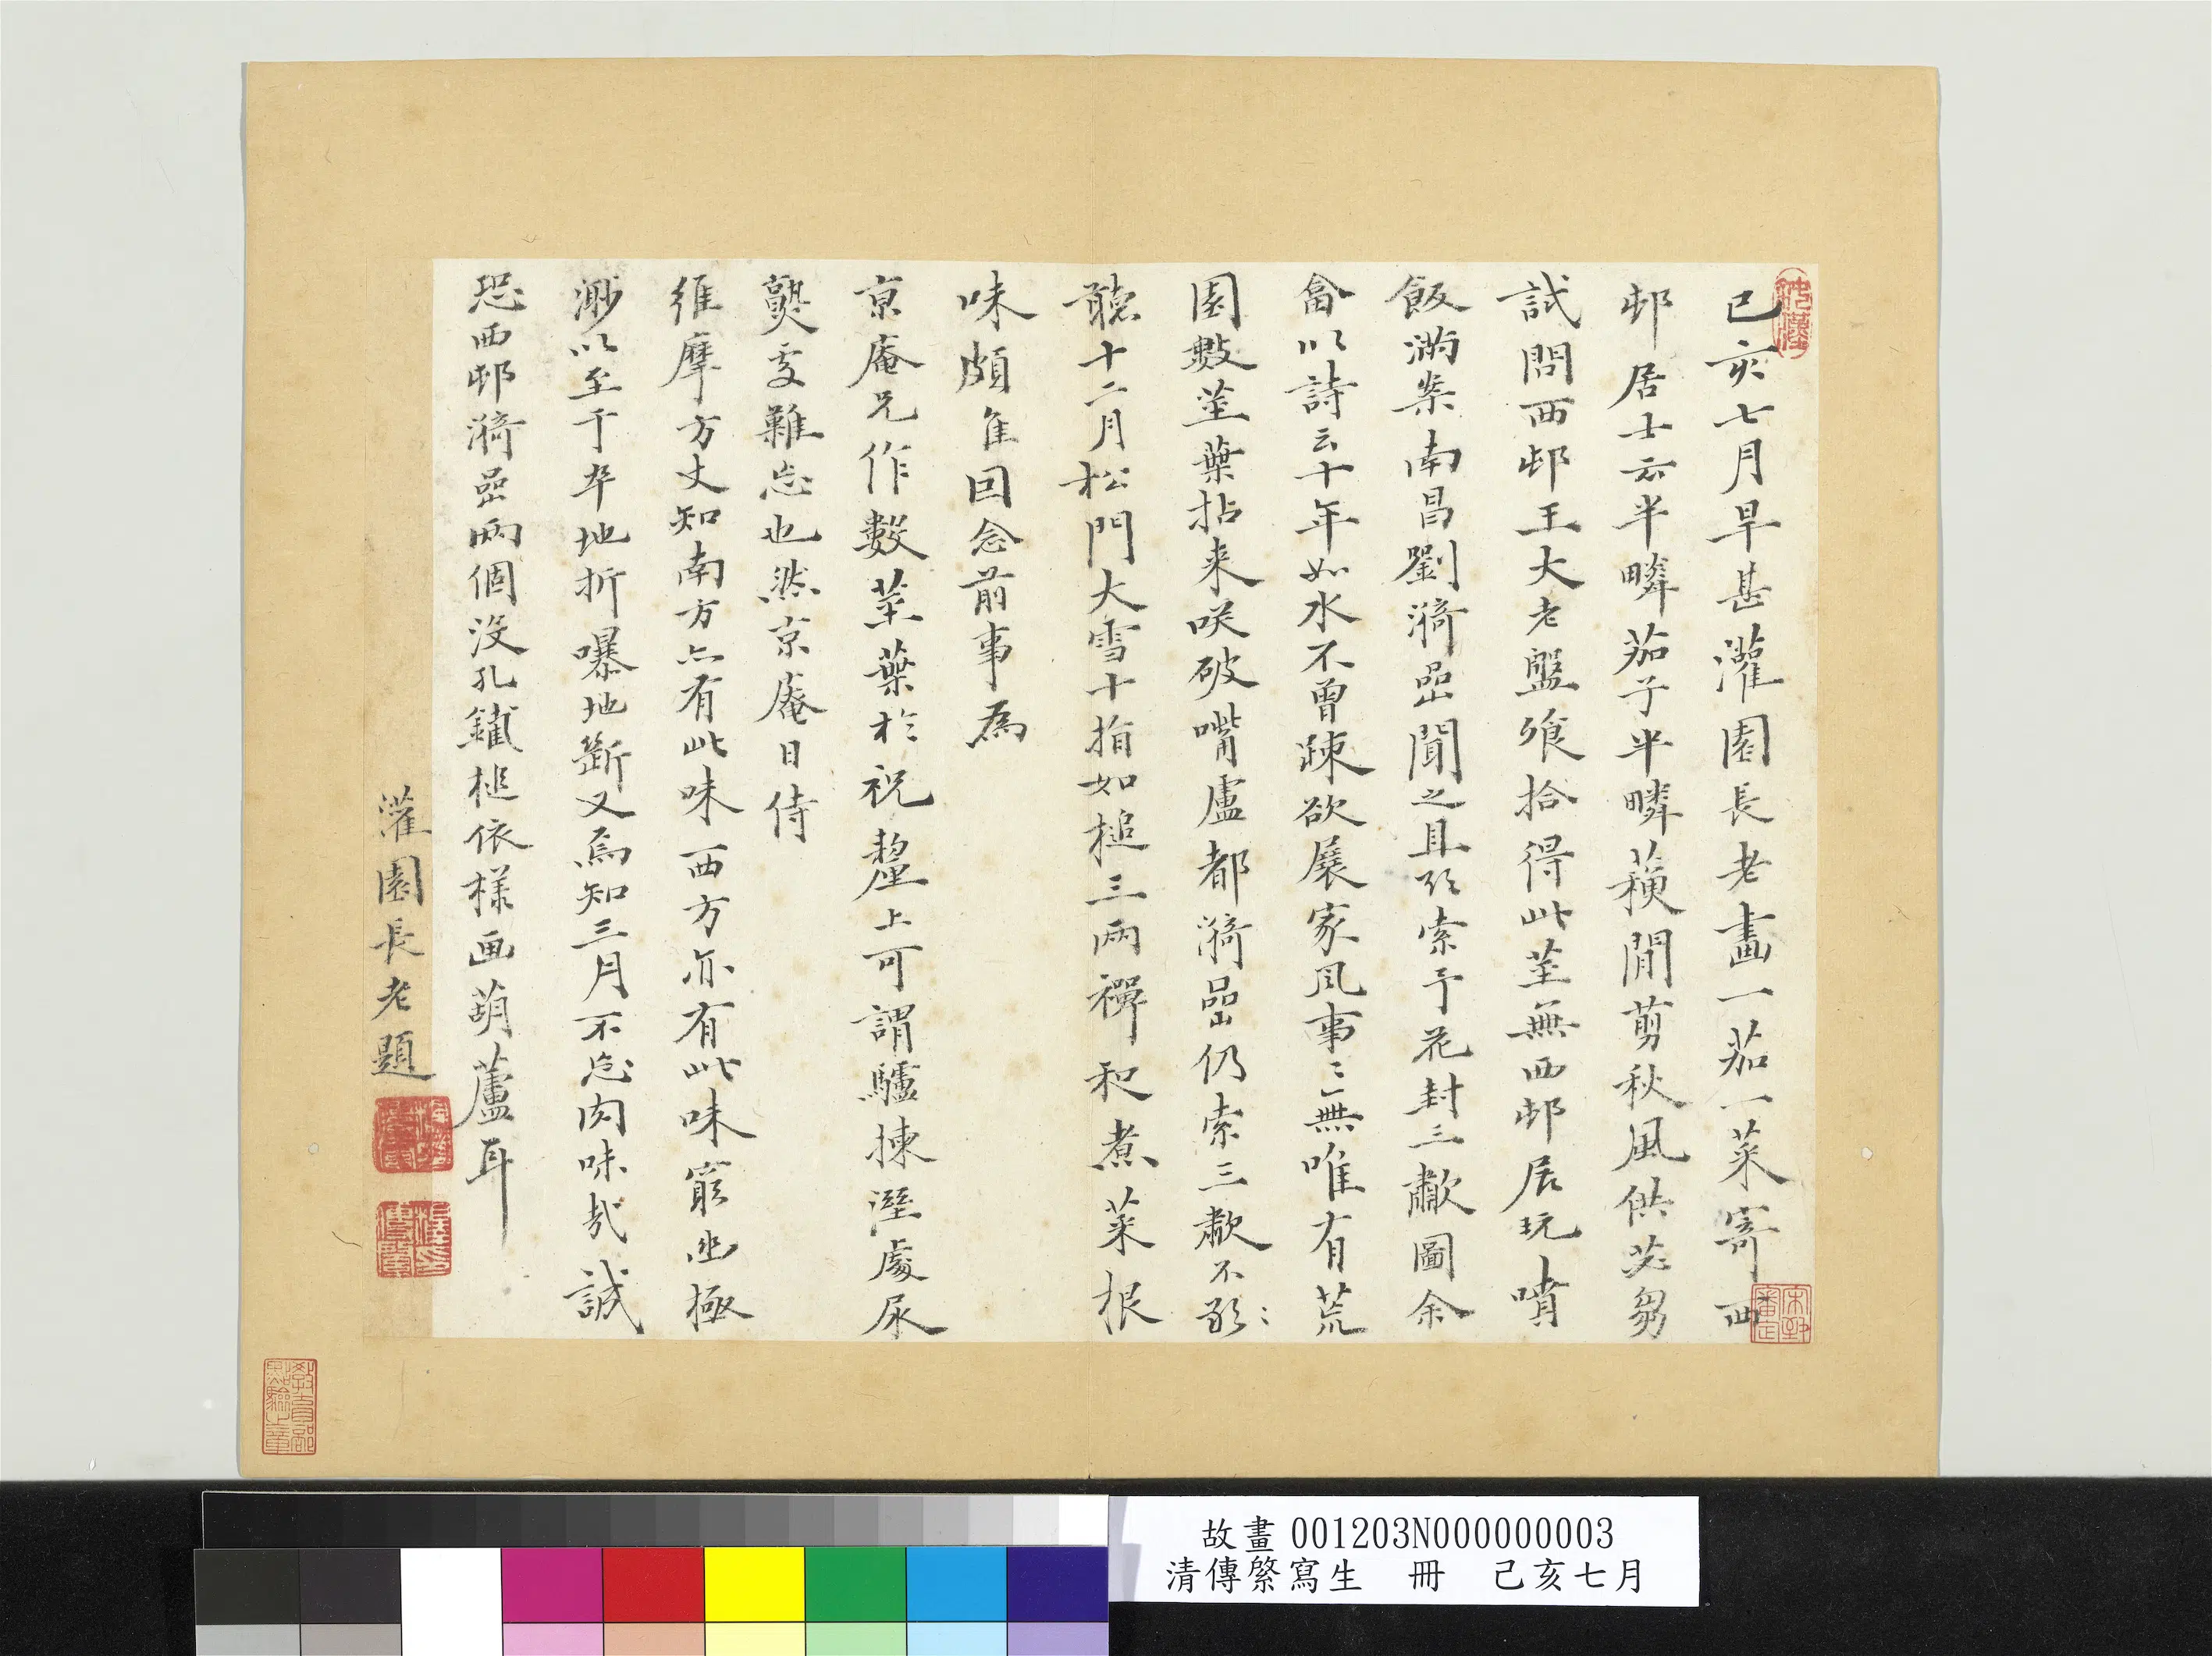 己亥七月旱甚灌園長老畫一茄一菜寄西
邨居士云半疄茄子半疄蕻閒剪秋風供苾芻
試問西邨王大老盤飧拾得此莖無西邨居玩噴
飯滿案南昌劉漪嵒聞之且欣索予花封三歗圖余
畣以詩云十年如水不曾疎欲展家風事〻無唯有荒
園數莖葉拈来咲破嘴盧都漪嵒仍索三歗不歇〻
聽十二月松門大雪十指如槌三兩禪和煮菜根
味頗隹回念前事為
京庵兄作數莖葉於祝釐上可謂驢揀溼處尿
熟處難忘也然京庵日侍
維摩方丈知南方亦有此味西方亦有此味窮幽極
渺以至于卒地折曝地斷又焉知三月不忘肉味哉誠
恐西邨漪嵒兩個没孔鐵槌依樣画葫蘆耳
灌園長老題
教育部點驗之章
故畫001203N000000003
清傳綮寫生 冊 己亥七月